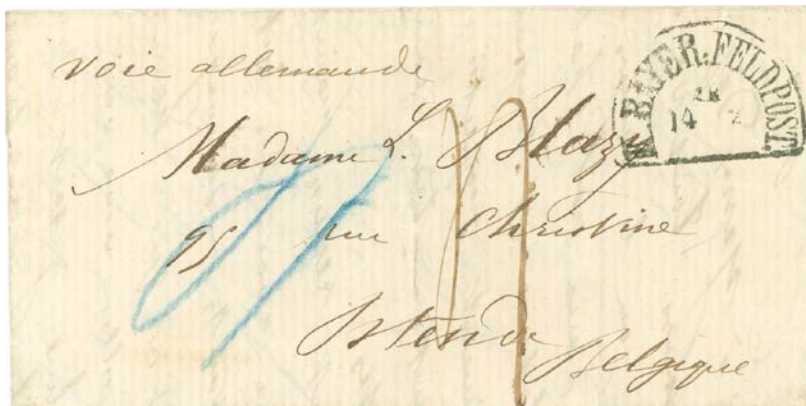 voie allemande
K. BAYER. FELDPOST.
14
Madame L. Blazy
95 rue Christine
Ostende
Belgique